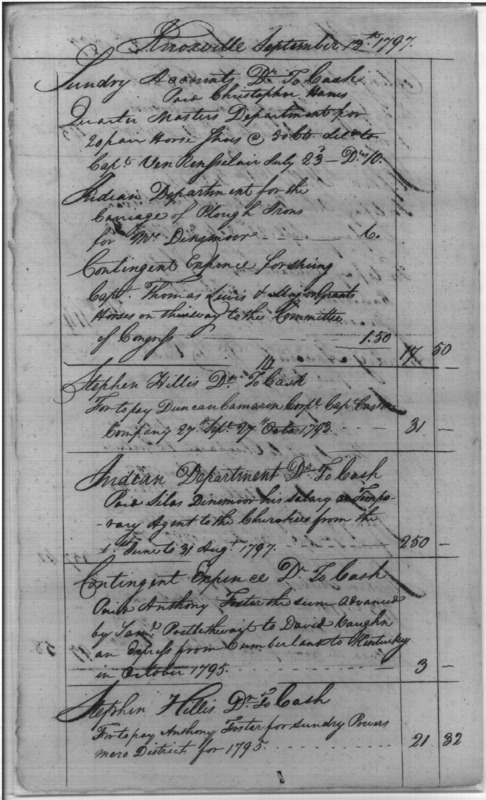 Knoxville September 12th 1797.
Sundry Accounts Dr. To Cash
Paid Christopher Haws
Quarter Masters Department for
20 pair Horse Shoes @ 50 Cts
Capt. Van Rensselair July 23 — Dr. 10.
Indian Department for the
Carriage of Plough Irons
for Mr. Dinsmoor 6.
Contingent Expence for Shoing
Capt. Thomas Lewis & Major Grants
Horses on their way to the Committee
of Congress 1.50 17 50
14
Stephen Hillis Dr. To Cash
For to pay Duncan Camaron Corpl. Cap
Company 27th Sept. 27th Octo. 1793. 31 —
Indian Department Dr. To Cash
Paid Silas Dinsmoor his Salary as Tempo-
-rary Agent to the Cherokees from the
1st. June to 31 Augt. 1797. 250 —
Contingent Expence Dr. To Cash
Paid Anthony Foster the sum Advanced
by Saml. Postlethwayt to David Vaughn
an Express from Cumberland to Kentucky
in October 1795. 3 —
Stephen Hillis Dr. To Cash
For to pay Anthony Foster for Sundry Powers
mero District for 1795. 21 32